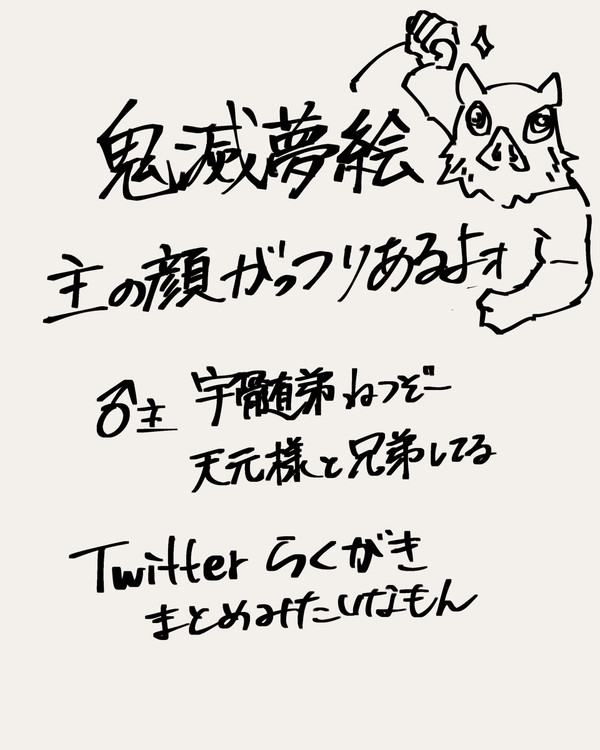 鬼滅夢絵
主の顔がっつりあるよォ
♂主 宇髄弟ねつぞー
天元様と兄弟してる
Twitterらくがき
まとめみたいなもん